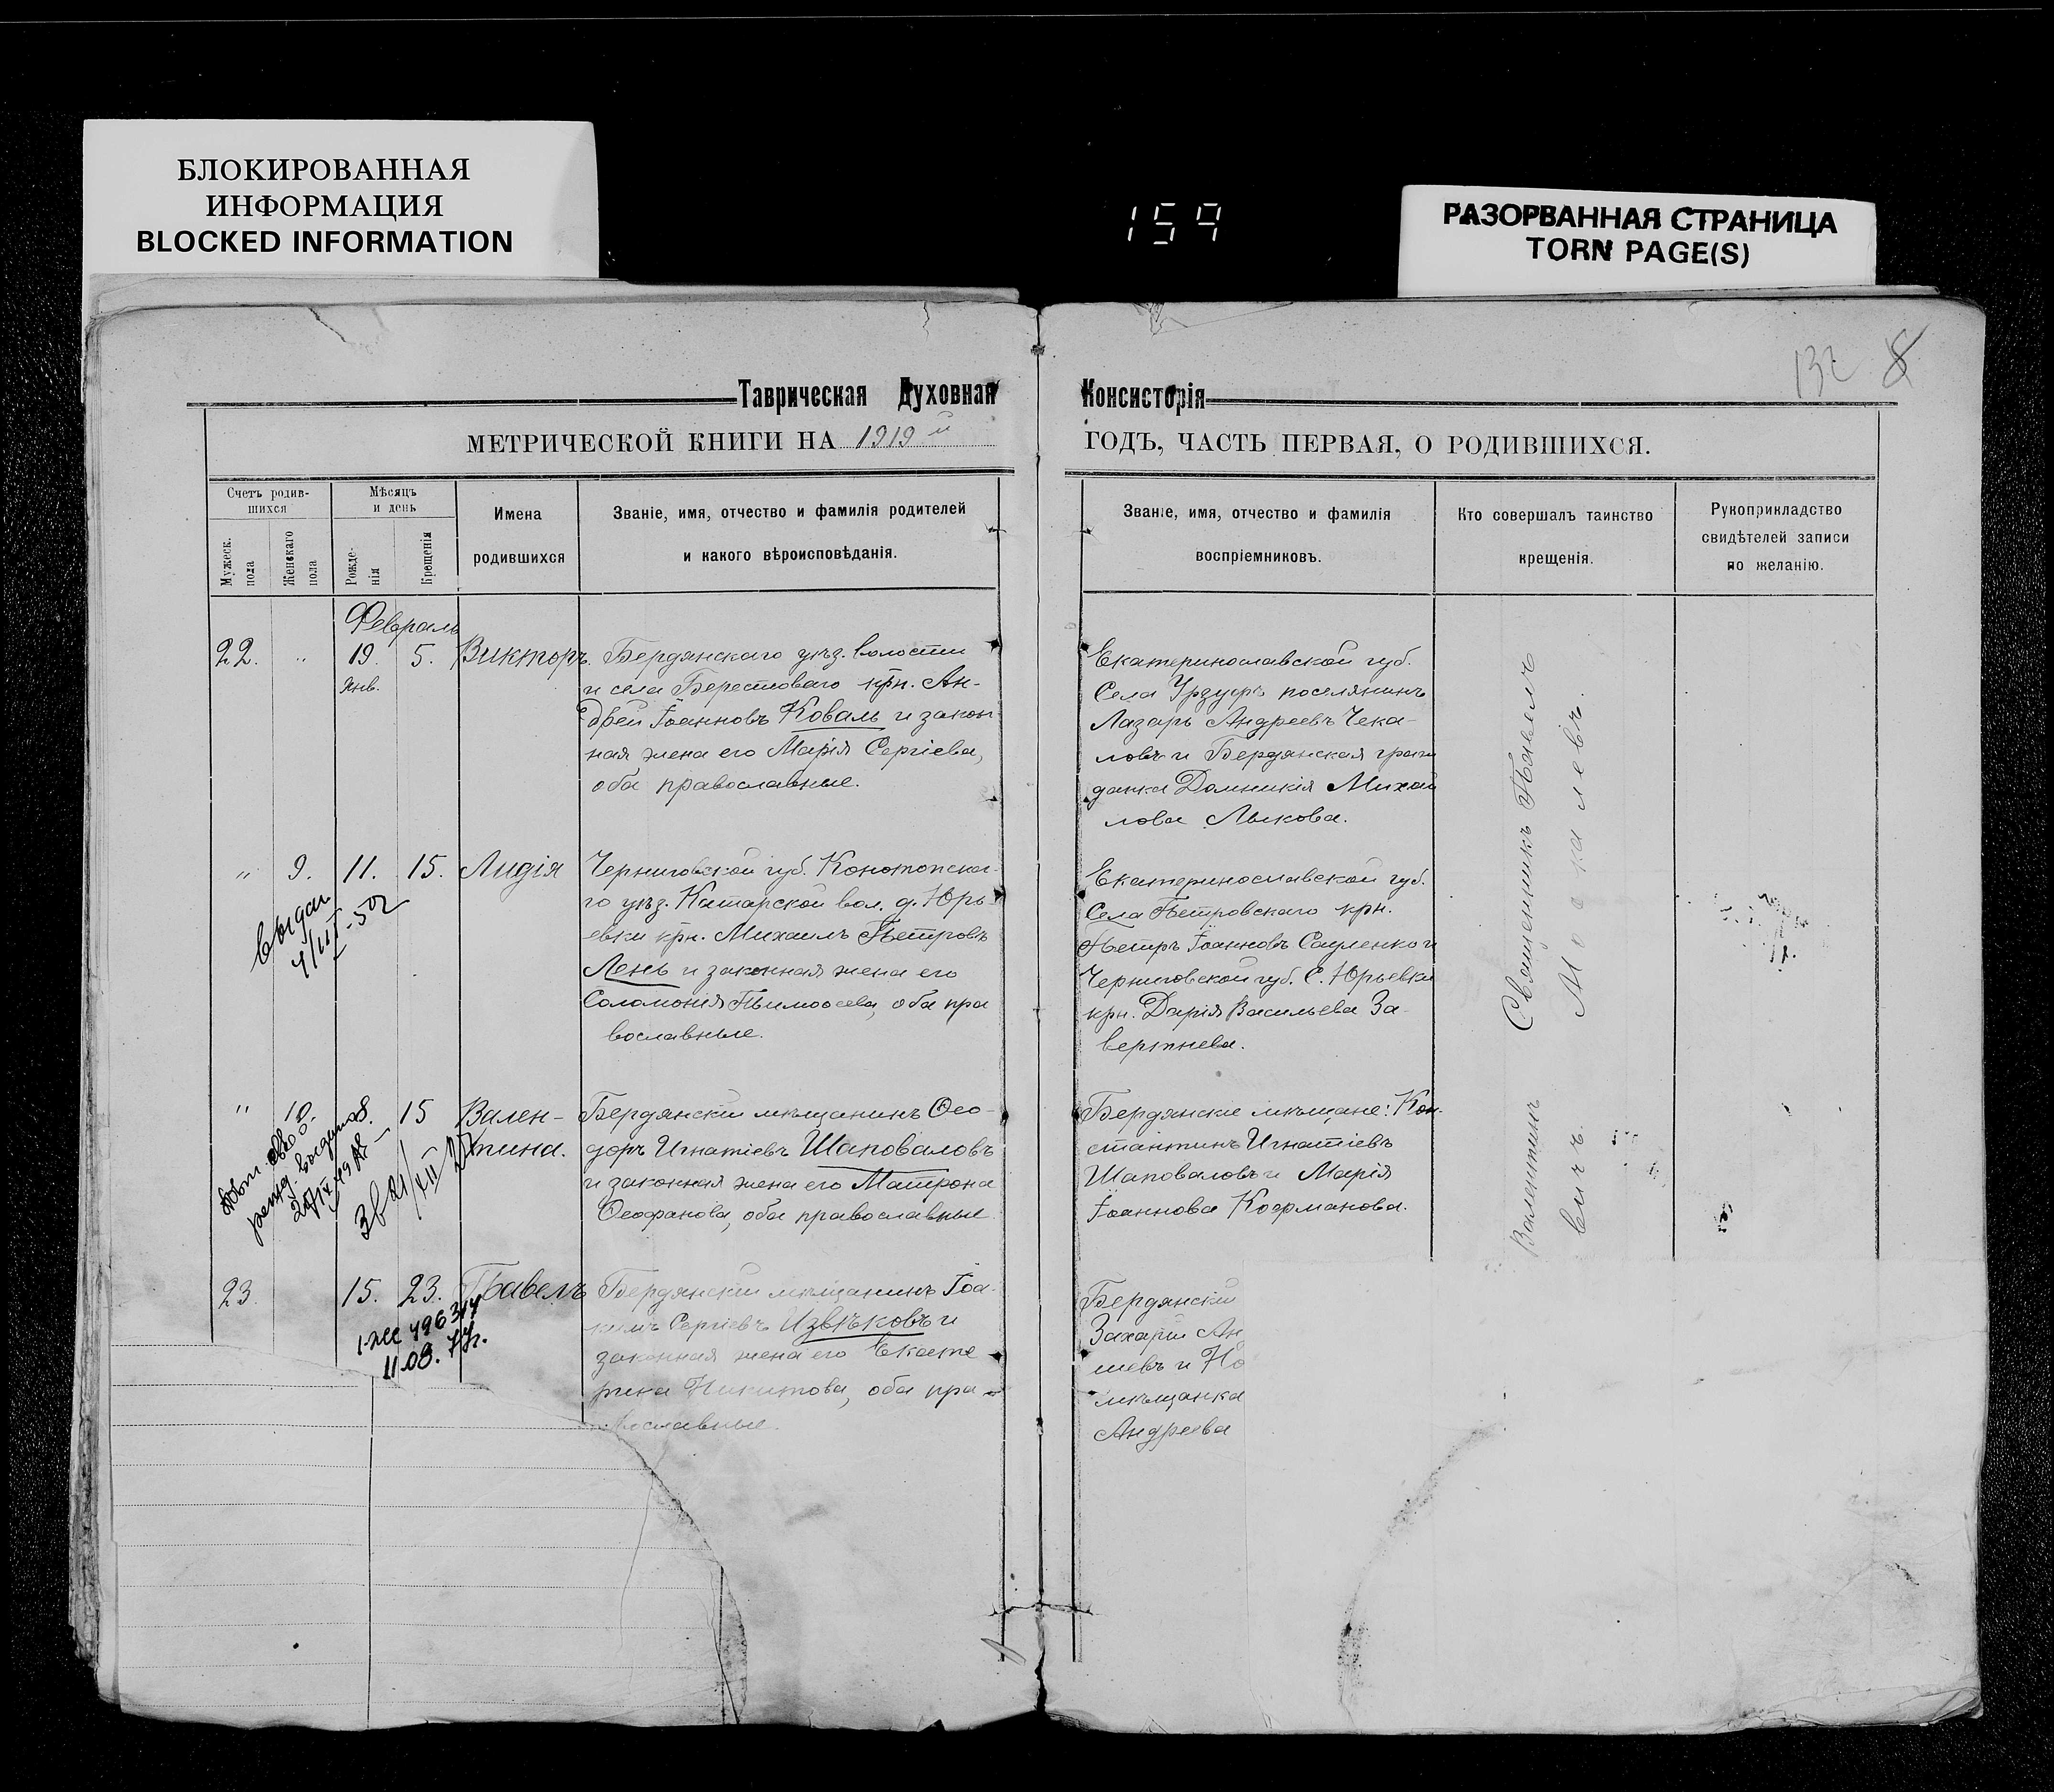 БЛОКИРОВАННАЯ
ИНФОРМАЦИЯ
BLOCKED INFORMATION
159
РАЗОРВАННАЯ СТРАНИЦА
TORN PAGE(S)
132 8
Таврическая Духовная Консисторія
МЕТРИЧЕСКОЙ КНИГИ НА 1919 й
ГОДЪ, ЧАСТЬ ПЕРВАЯ, О РОДИВШИХСЯ.
Счетъ родив-
шихся
Мужеск.
пола
Женскаго
пола
Мѣсяцъ
и день
Рожде-
нія
Крещенія
Имена
родившихся
Званіе, имя, отчество и фамилія родителей
и какого вѣроисповѣданія.
Званіе, имя, отчество и фамилія
воспріемниковъ.
Кто совершалъ таинство
крещенія.
Рукоприкладство
свидѣтелей записи
по желанію.
Февраль
22. " 19. 5. Викторъ.
Янв.
Бердянскаго уѣз. волости
и села Берестоваго крн. Ан-
дрей Іоанновъ Коваль и закон
ная жена его Марія Сергіева,
оба православные.
Екатеринославской губ.
Села Урзуфъ поселянинъ
Лазарь Андреевъ Чека-
ловъ и Бердянская граж
данка Домникія Михай
лова Лыкова.
" 9. 11. 15. Лидія
Черниговской губ. Конотопска-
го уѣз. Катарской вол. д. Юрь-
евки крн. Михаилъ Петровъ
Лень и законная жена его
Соломонія Тимоѳеева, оба пра
вославные.
Екатеринославской губ.
Села Петровскаго крн.
Петръ Іоанновъ Сауленко и
Черниговской губ. С. Юрьевки
крн. Дарія Васильева За-
вертнева.
" 10. 8. 15 Вален-
тина.
Бердянскій мѣщанинъ Ѳео-
доръ Игнатіевъ Шаповаловъ
и законная жена его Матрона
Ѳеофанова, оба православные
Бердянскіе мѣщане: Кон-
стантинъ Игнатіевъ
Шаповаловъ и Марія
Іоаннова Кофманова.
23. 15. 23. Павелъ
Бердянскій мѣщанинъ Іоа-
кимъ Сергіевъ Извѣковъ и
законная жена его Екате
рина Никитова, оба пра-
вославные.
Бердянскій
Захарій Ан
шевъ и Но
мѣщанка
Андреева
Священникъ Павелъ
Валентин
Москалев
вичъ.